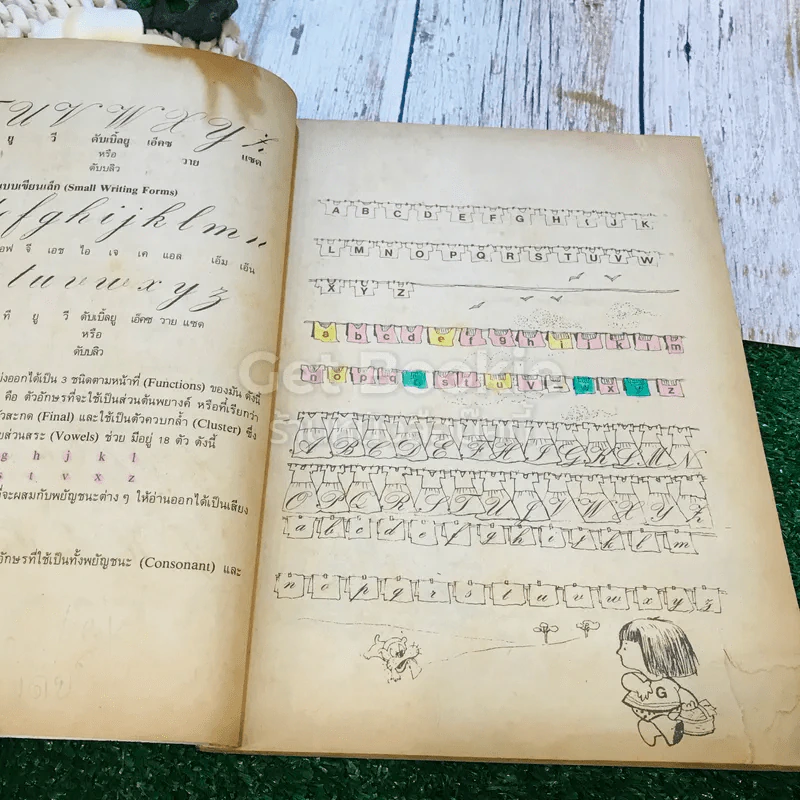 U V W X Y Z
ยู วี ดับเบิ้ลยู เอ็คซ วาย แซด
หรือ
ดับบลิว
แบบเขียนเล็ก (Small Writing Forms)
f g h i j k l m n
อฟ จี เอช ไอ เจ เค แอล เอ็ม เอ็น
t u v w x y z
ที ยู วี ดับเบิ้ลยู เอ็คซ วาย แซด
หรือ
ดับบลิว
งออกได้เป็น 3 ชนิดตามหน้าที่ (Functions) ของมัน ดังนี้
คือ ตัวอักษรที่จะใช้เป็นส่วนต้นพยางค์ หรือที่เรียกว่า
วสะกด (Final) และใช้เป็นตัวควบกล้ำ (Cluster) ซึ่ง
ยส่วนสระ (Vowels) ช่วย มีอยู่ 18 ตัว ดังนี้
g h j k l
s t v x z
ที่จะผสมกับพยัญชนะต่าง ๆ ให้อ่านออกได้เป็นเสียง
อักษรที่ใช้เป็นทั้งพยัญชนะ (Consonant) และ
A B C D E F G H I J K
L M N O P Q R S T U V W
X Y Z
a b c d e f g h i j k l m
n o p q r s t u v w x y z
A B C D E F H I G K L M N
O P Q R S T U V W X Y Z
a b c d e f g h i j k l m
n o p q r s t u v w x y z
G
Get Bookie